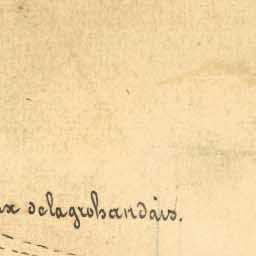 ux delagrohandais.